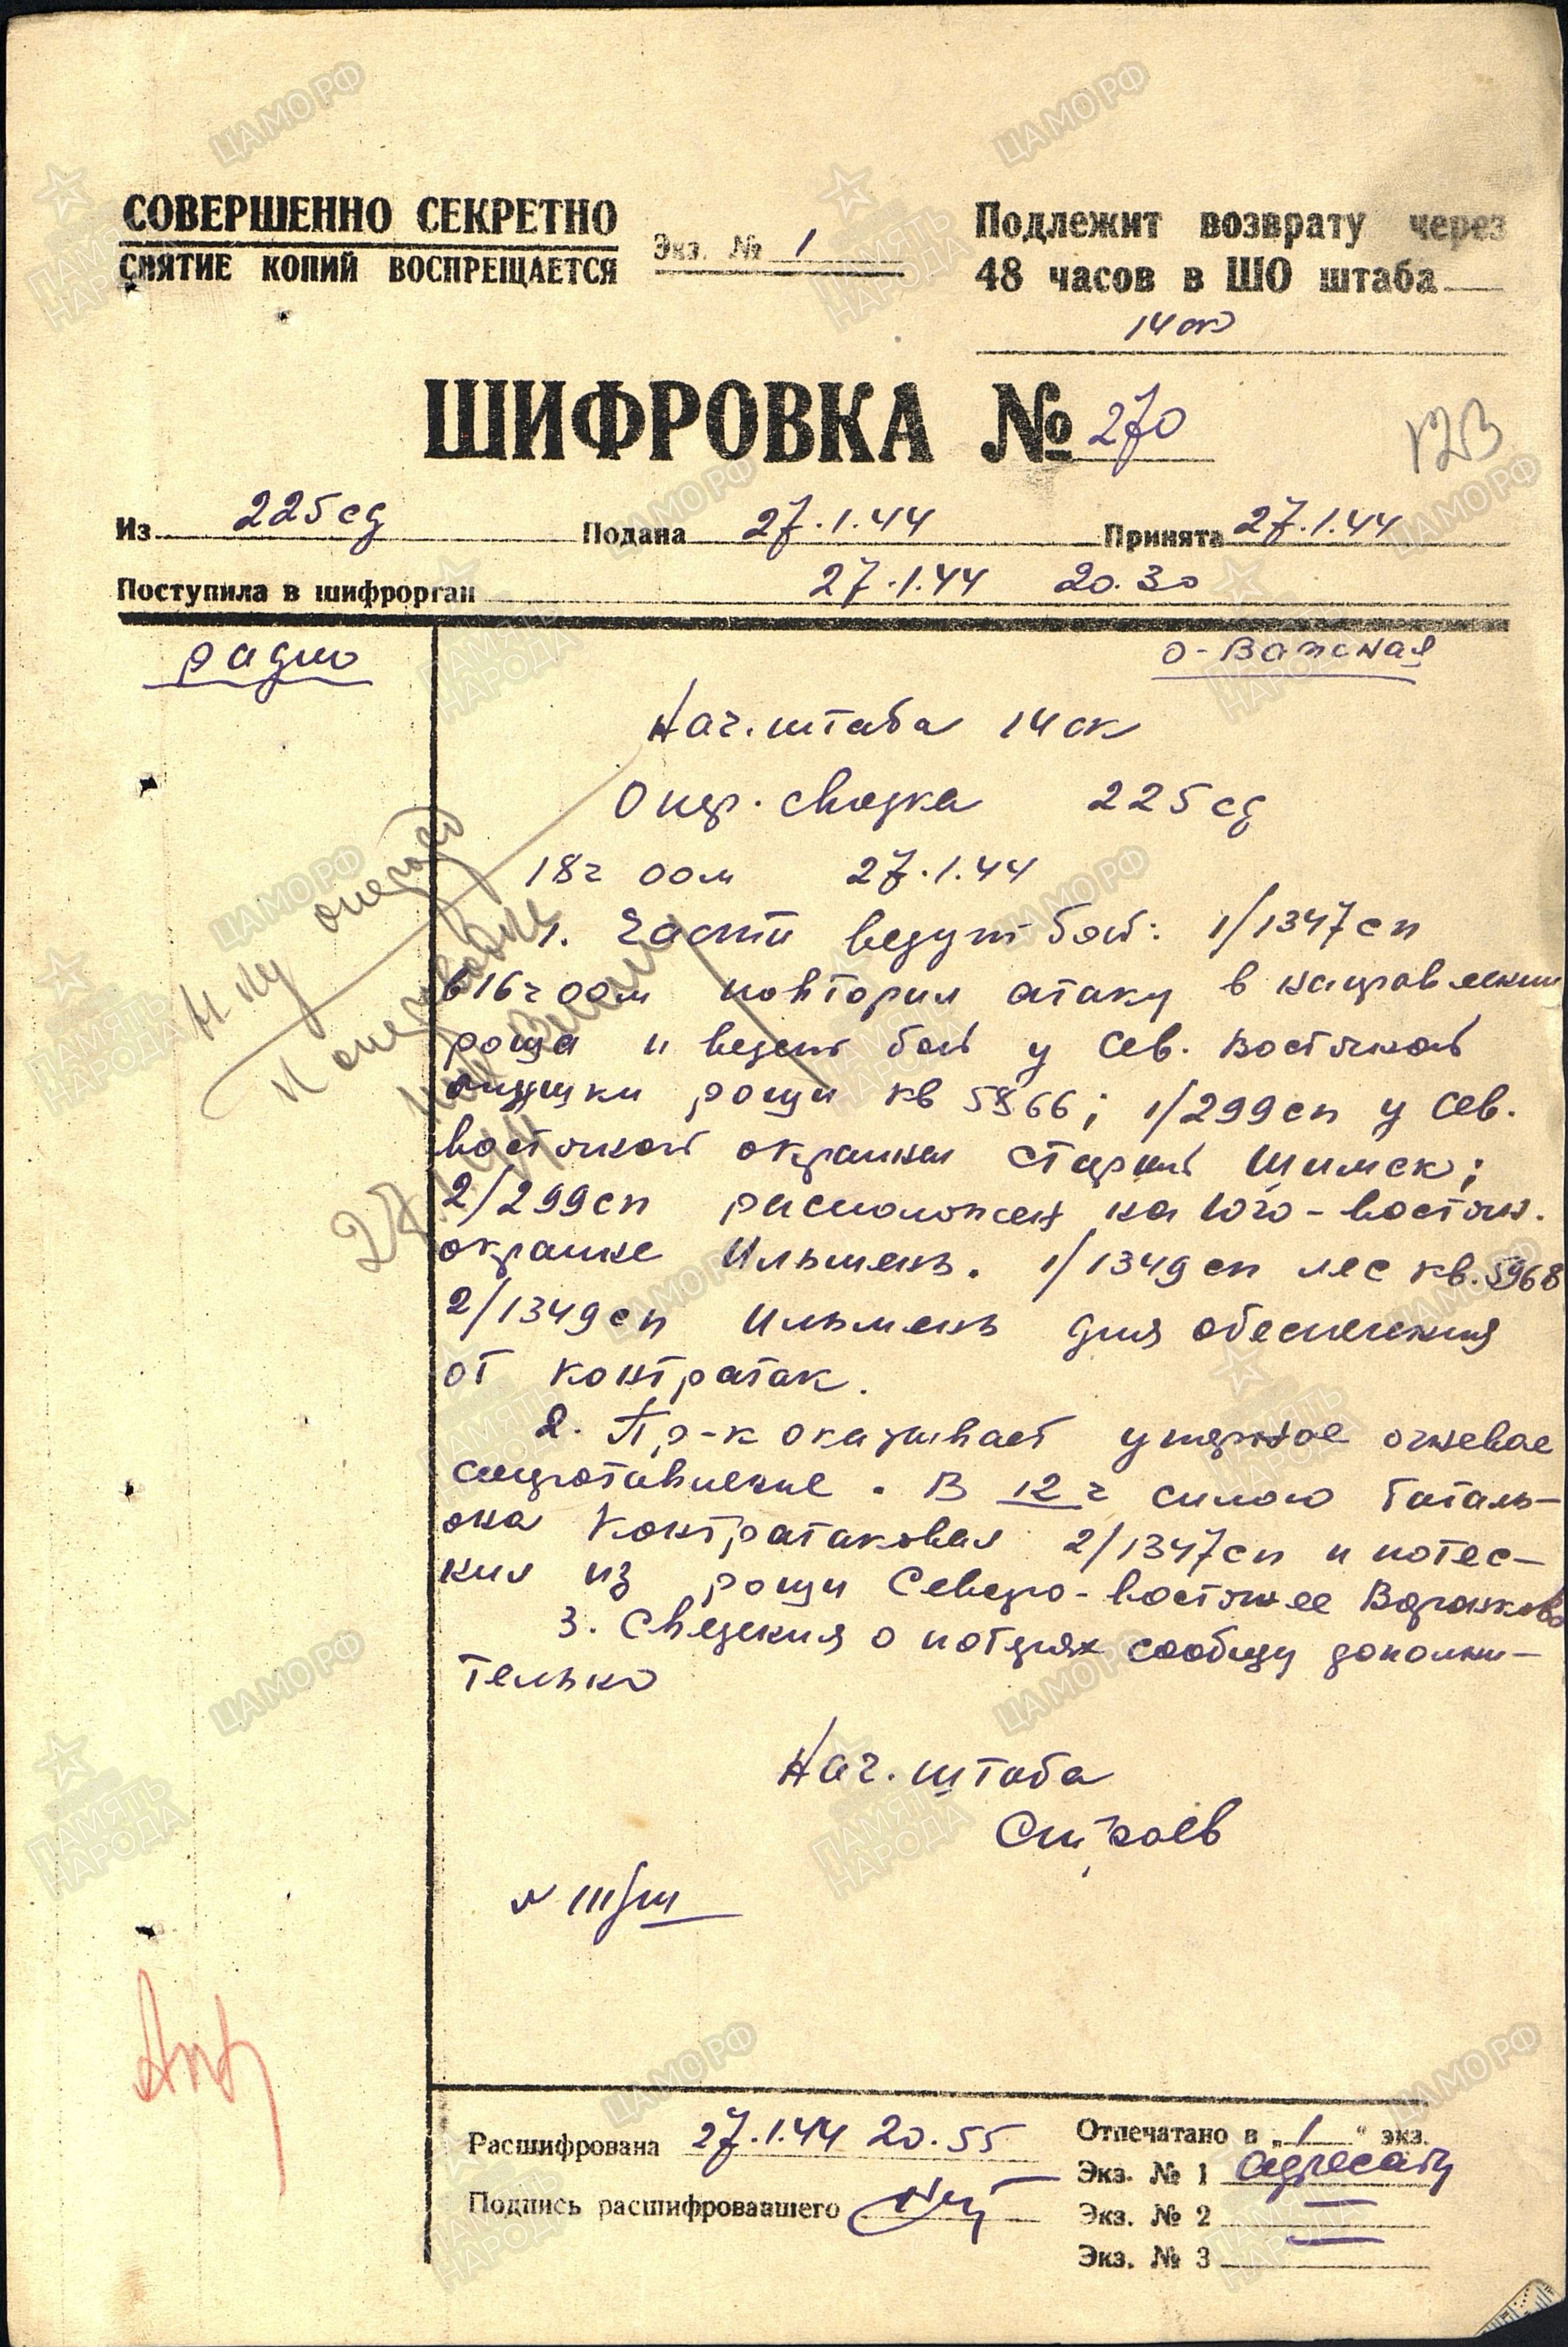 СОВЕРШЕННО СЕКРЕТНО
СНЯТИЕ КОПИЙ ВОСПРЕЩАЕТСЯ
Экз. № 1
Подлежит возврату через
48 часов в ШО штаба
14 ск
ШИФРОВКА № 270
123
Из 225 сд Подана 27.1.44 Принята 27.1.44
Поступила в шифрорган 27.1.44 20.30
радио
о-важная
Нач. штаба 14 ск
Опер. сводка 225 сд
18ч 00м 27.1.44
1. Части ведут бой: 1/1347 сп
в 16ч 00м повторил атаку в направлении
роща и ведет бой у сев. восточной
опушки рощи кв 5866; 1/299 сп у сев.
восточной окраины Старый Шимск;
2/299 сп расположен на юго-восточ.
окраине Ильмень. 1/1349 сп лес кв. 5968
2/1349 сп Ильмень для обеспечения
от контратак.
2. Пр-к оказывает упорное огневое
сопротивление. В 12 ч силою баталь-
она контратаковал 2/1347 сп и потес-
нил из рощи Северо-восточнее Воронково
3. Сведения о потерях сообщу дополни-
тельно
Нач. штаба
Строев
27.1.44
Расшифрована 27.1.44 20.55
Подпись расшифровавшего
Отпечатано в „1“ экз.
Экз. № 1 адресату
Экз. № 2 —
Экз. № 3 —
ЦАМО РФ
ПАМЯТЬ НАРОДА